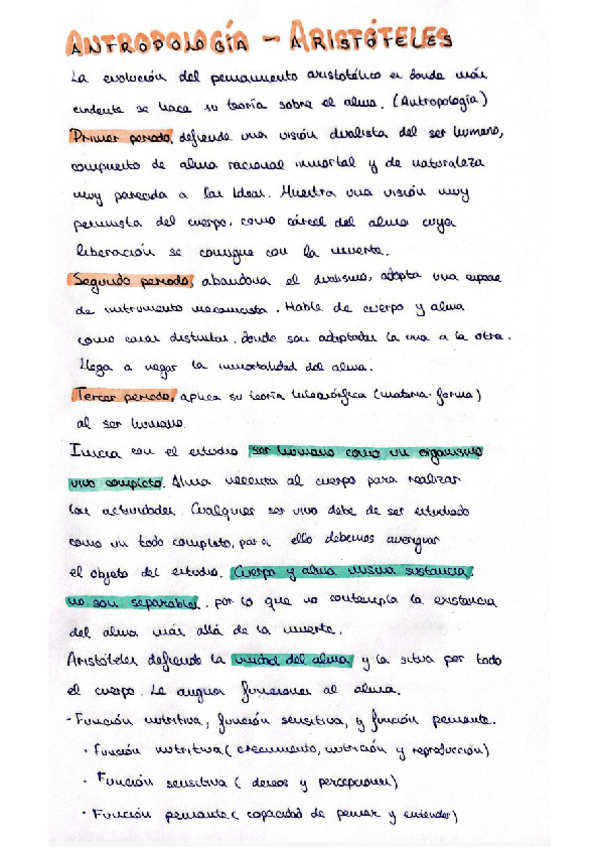 ANTROPOLOGÍA - ARISTÓTELES
La evolución del pensamiento aristotélico es donde más
evidente se hace su teoría sobre el alma. (Antropología)
Primer periodo, defiende una visión dualista del ser humano,
compuesto de alma racional inmortal y de naturaleza
muy parecida a las Ideas. Muestra una visión muy
pesimista del cuerpo, como cárcel del alma cuya
liberación se consigue con la muerte.
Segundo periodo, abandona el dualismo, adopta una especie
de instrumento mecanicista. Habla de cuerpo y alma
como cosas distintas, donde son adaptadas la una a la otra.
Llega a negar la inmortalidad del alma.
Tercer periodo, aplica su teoría hilemórfica (materia-forma)
al ser humano.
Inicia con el estudio ser humano como un organismo
vivo completo. Alma necesita al cuerpo para realizar
las actividades. Cualquier ser vivo debe de ser estudiado
como un todo completo, para ello debemos averiguar
el objeto del estudio. Cuerpo y alma misma sustancia,
no son separables, por lo que no contempla la existencia
del alma más allá de la muerte.
Aristóteles defiende la unidad del alma y la situa por todo
el cuerpo. Le asigna funciones al alma.
- Función nutritiva, función sensitiva, y función pensante.
· Función nutritiva (crecimiento, nutrición y reproducción)
· Función sensitiva (deseos y percepciones)
· Función pensante (capacidad de pensar y entender)